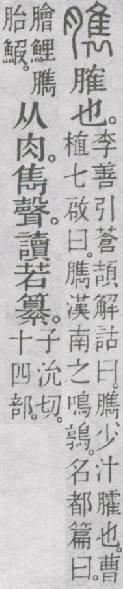 臇𦞦也。李善引蒼頡解詁曰。臇、少汁臛也。曹植七啟曰。臇漢南之鳴鶉。名都篇曰。
膾鯉臇胎鰕。从肉。雋聲。讀若纂。子沇切。十四部。